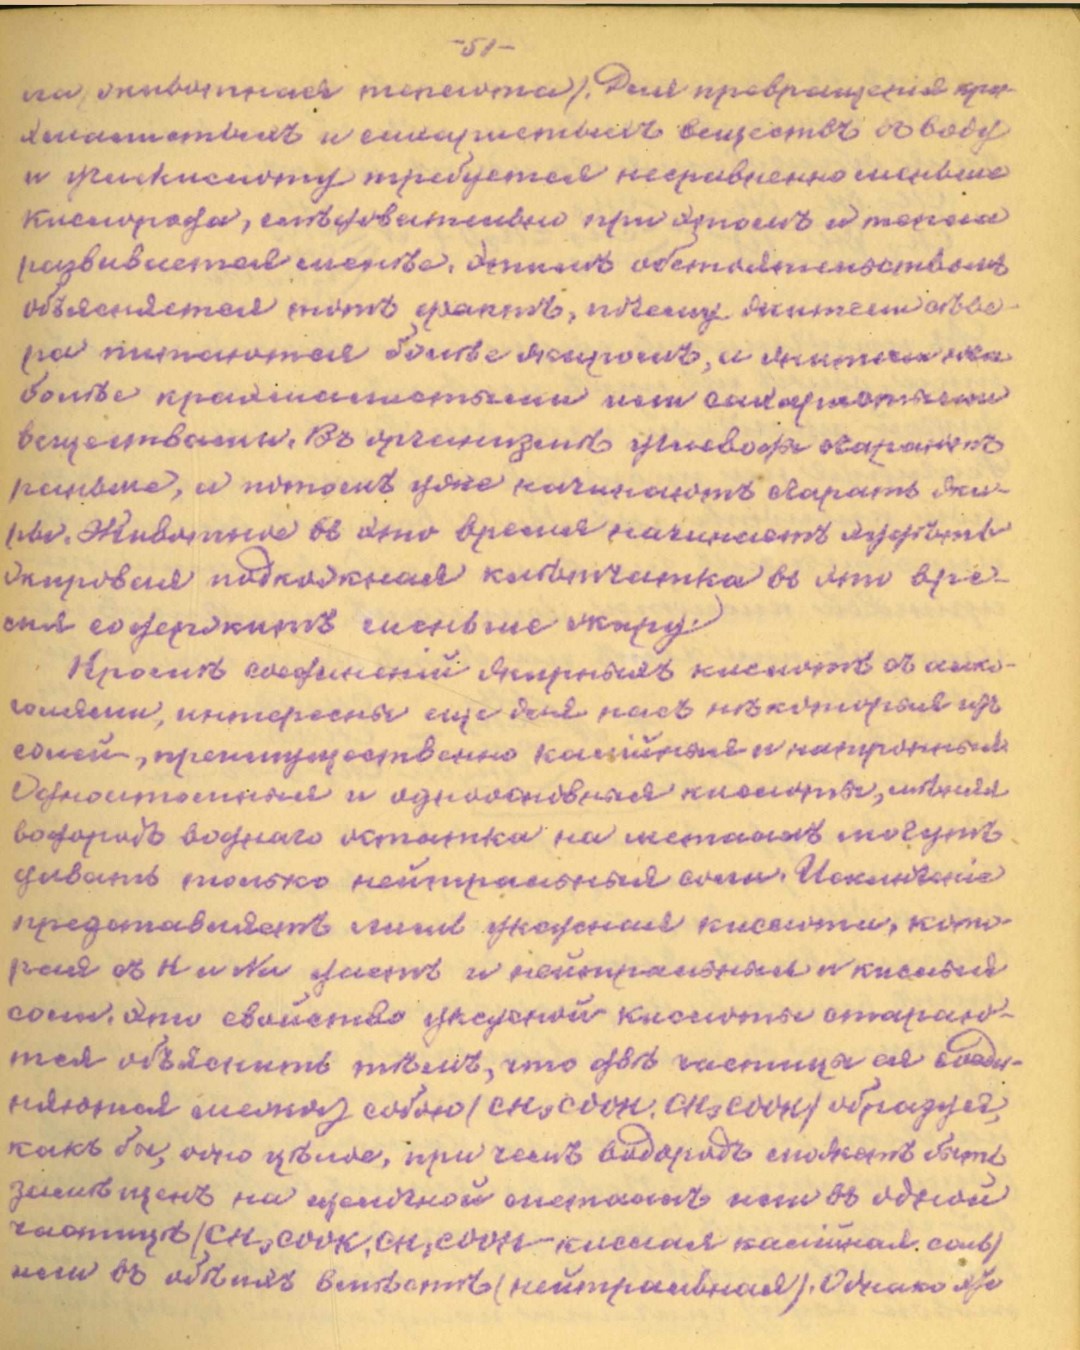 -51-
ла животная теплота). Для превращенія кра-
хмалистыхъ и сахаристыхъ веществъ въ воду
и углекислоту требуется несравненно меньше
кислорода, слѣдовательно при этомъ и тепла
развивается менѣе. Этимъ обстоятельствомъ
объясняется тотъ фактъ, почему жители сѣве-
ра питаются болѣе жиромъ, а жители юга
болѣе крахмалистыми или сахаристыми
веществами. Въ организмѣ углеводы сгараютъ
раньше, а потомъ уже начинаютъ сгарать жи-
ры. Животное въ это время начинаетъ худѣть
жировая подкожная клѣтчатка въ это вре-
мя содержитъ меньше жиру.)
Кромѣ соединеній жирныхъ кислотъ съ алко-
голями, интересны еще для насъ нѣкоторыя изъ
солей, преимущественно калійныя и натронныя.
Одноатомныя и одноосновныя кислоты, мѣняя
водородъ воднаго остатка на металлъ могутъ
давать только нейтральныя соли. Исключеніе
представляетъ лишь уксусная кислота, кото-
рая съ К и Na даетъ и нейтральныя и кислыя
соли. Это свойство уксусной кислоты стараю-
тся объяснить тѣмъ, что двѣ частицы ея соеди-
няются между собою (CH₃COOH, CH₃COOH) образуя,
какъ бы, одно цѣлое, при чемъ водородъ можетъ быть
замѣщенъ на щелочной металлъ или въ одной
частицѣ (CH₃COOK, CH₃COOH - кислая калійная соль)
или въ обѣихъ вмѣстѣ (нейтральная). Однако